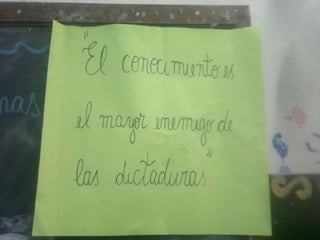 "El conocimiento es
el mayor enemigo de
las dictaduras"
nas